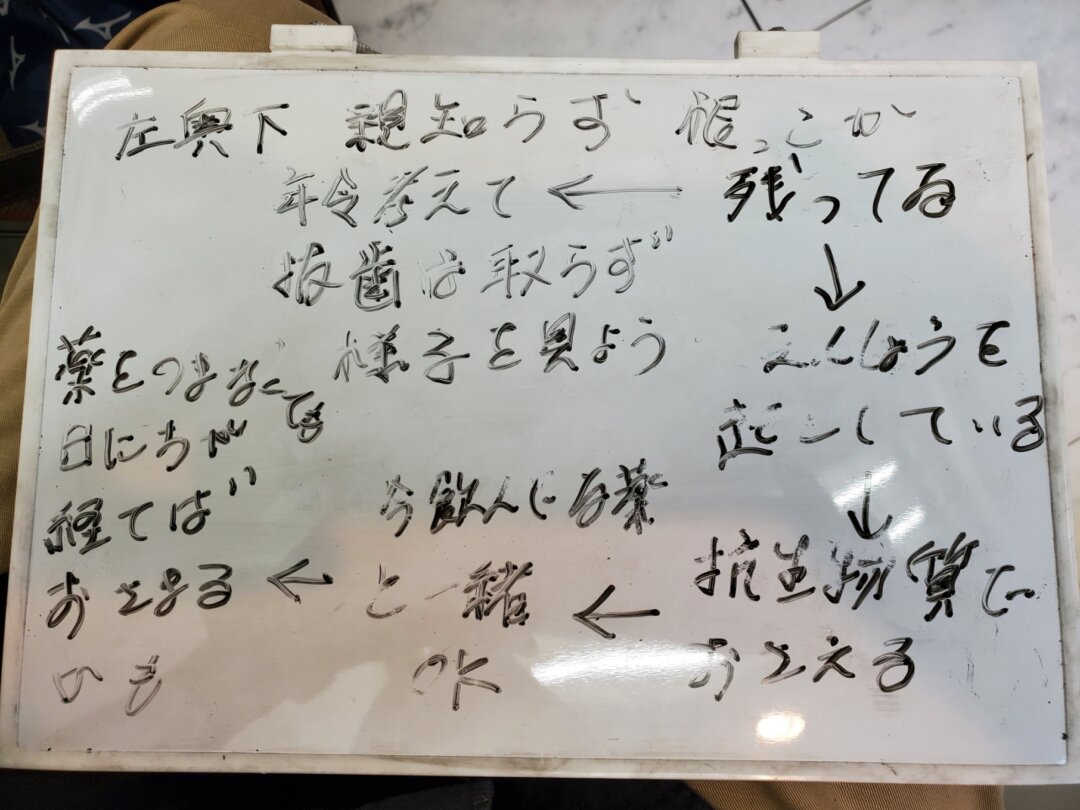 左奥下 親知らず 根っこが
残ってる
→
年令考えて
抜歯は取らず
様子を見よう
↓
えんしょうを
起こしている
↓
抗生物質で
おさえる
←
今飲んでる薬
と一緒
OK
←
薬をのまなくても
日にちが
経てば
おさまる
のも